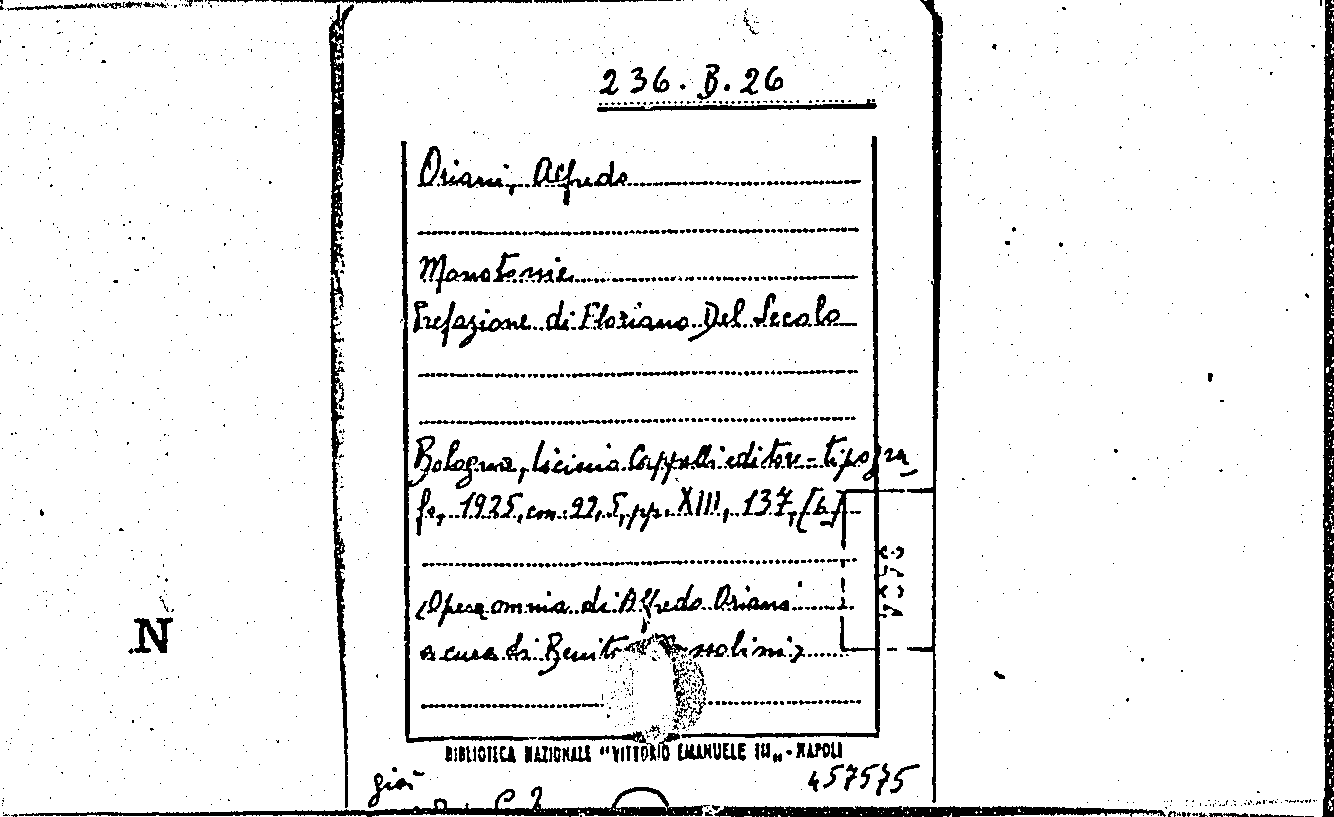 236.B.26
Oriani, Alfredo
Monotonie
Prefazione di Floriano Del Secolo
Bologna, Licinio Cappelli editore-tipogra
fo, 1925, cm. 22,5, pp. XIII, 137, [6]
<Opera omnia di Alfredo Oriani
a cura di Benito Mussolini>
BIBLIOTECA NAZIONALE "VITTORIO EMANUELE III" - NAPOLI
già
457575
N